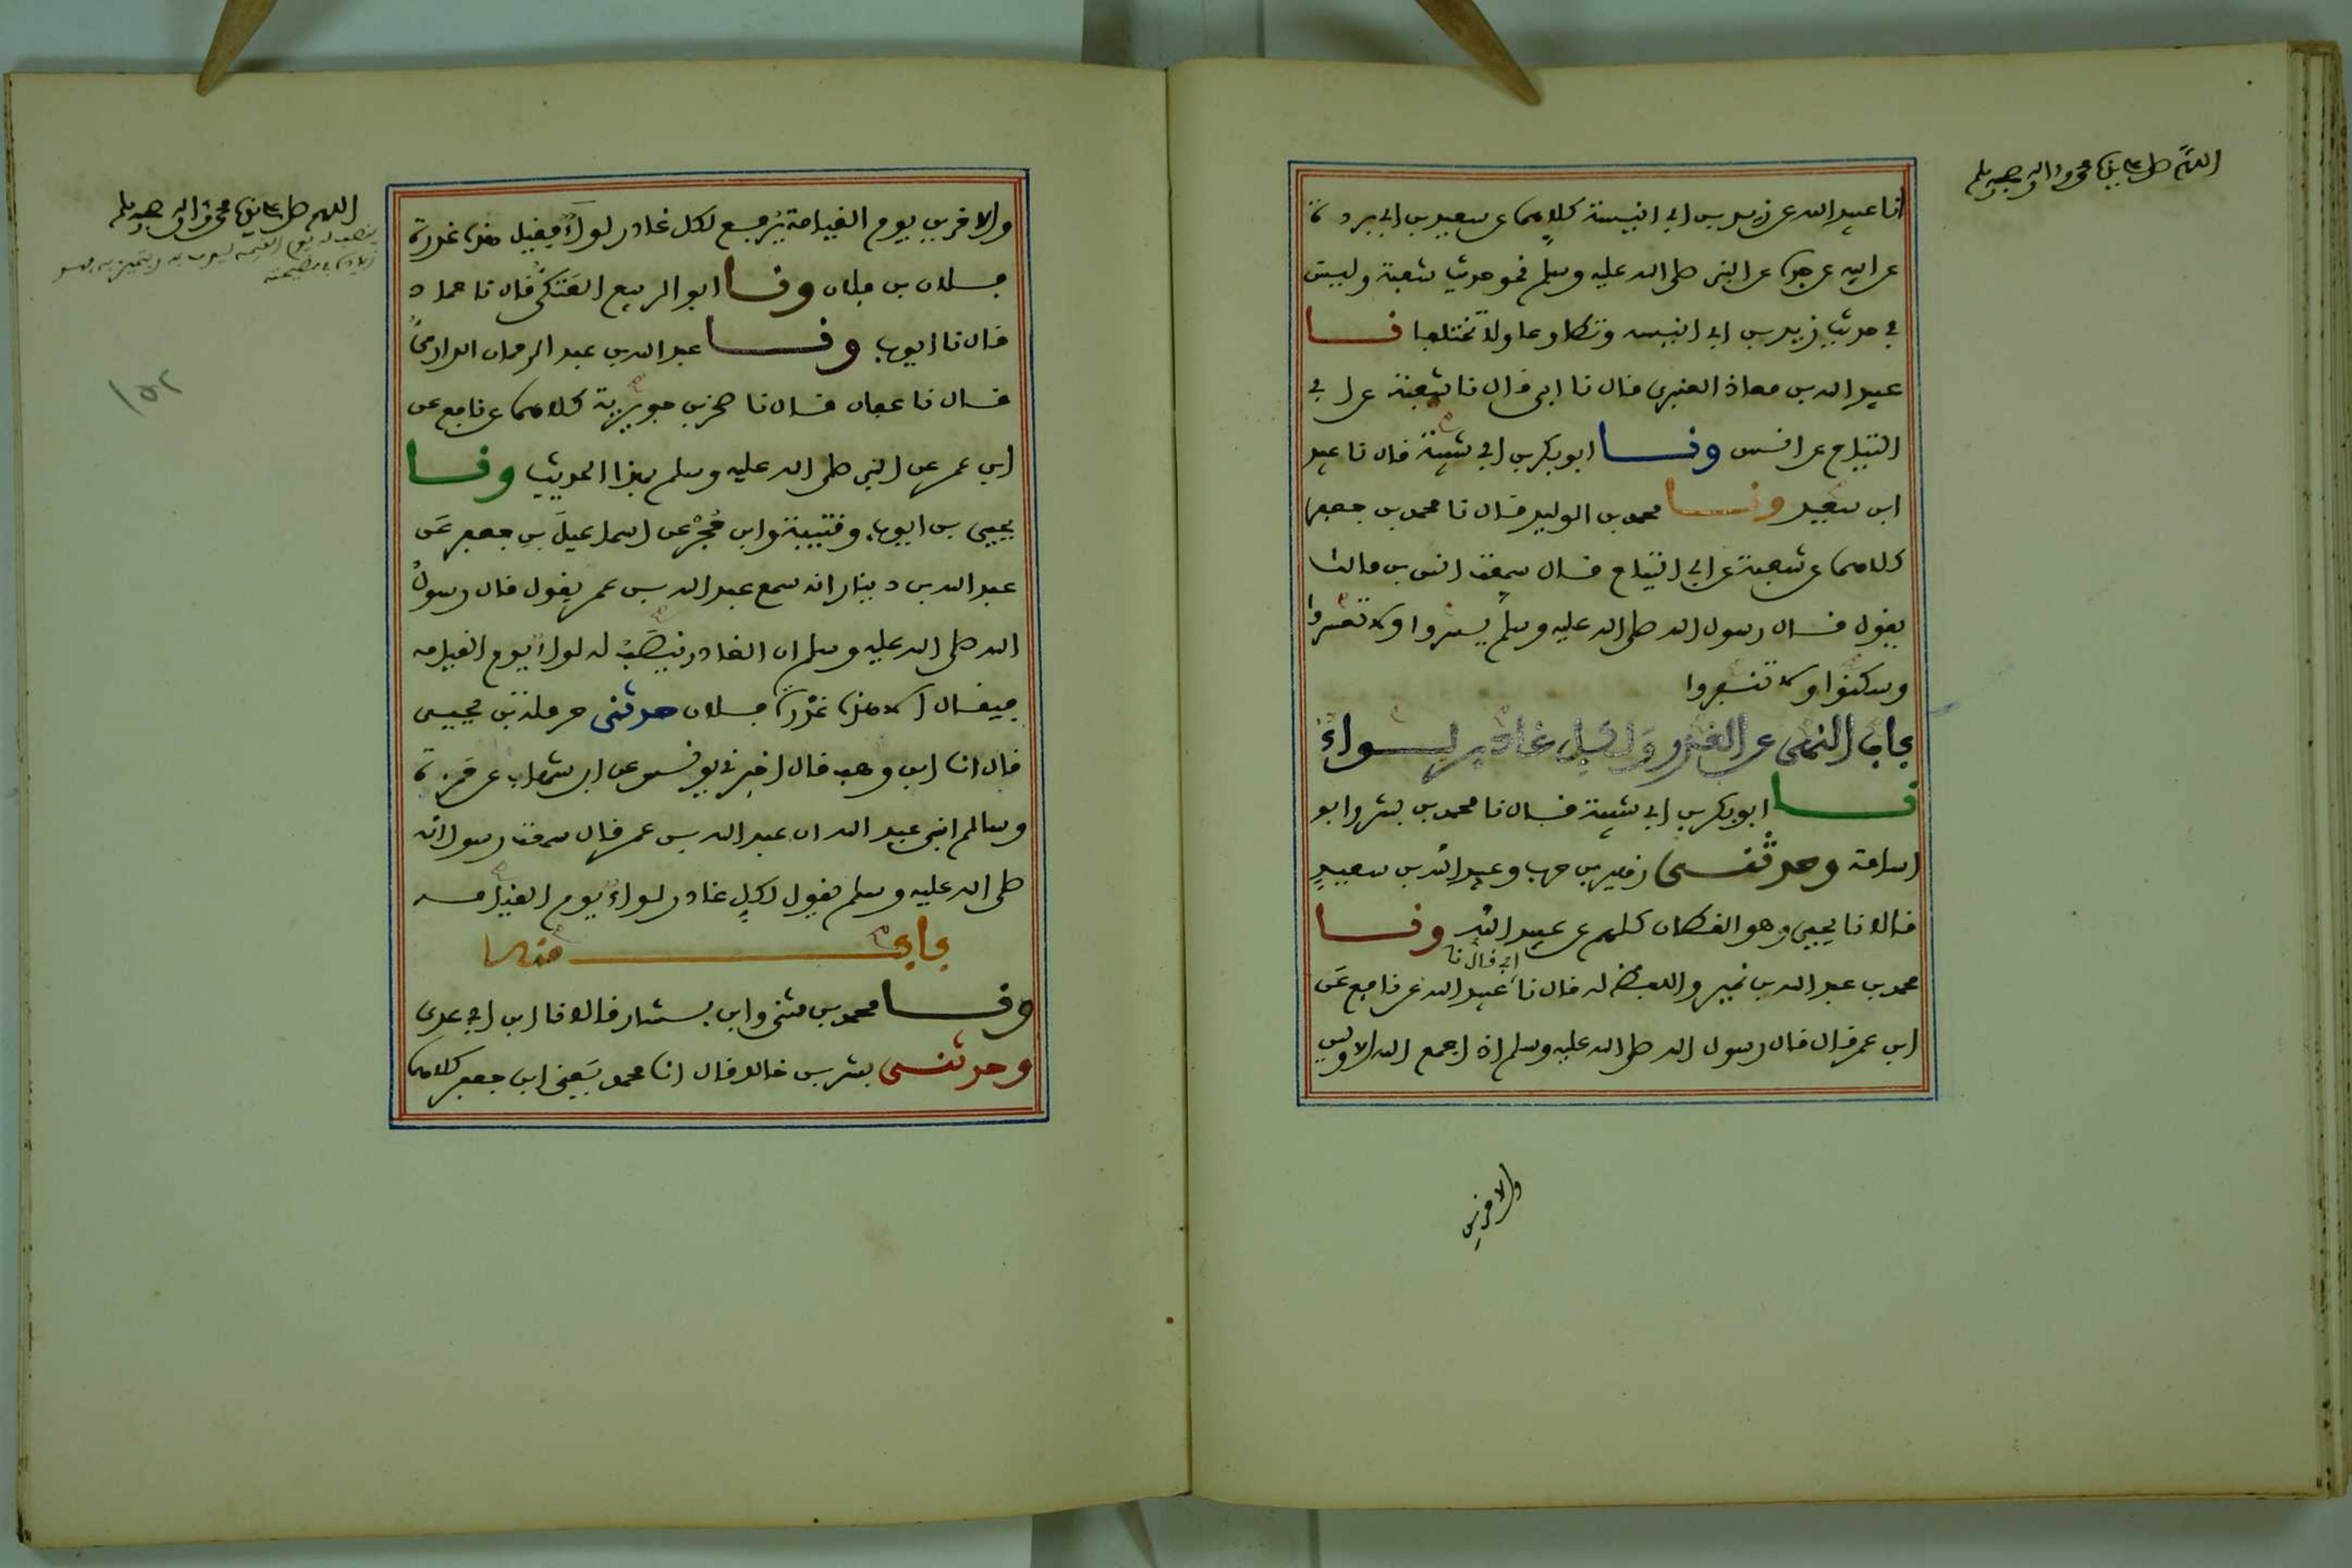 اللهم صل على سيدنا محمد واله وصحبه وسلم
انا عبيد الله عن زيد بن ابي انيسة كلاهما عن سعيد بن ابي بردة
عن ابيه عن جده عن النبي صلى الله عليه وسلم نحو حديث شعبة وليس
في حديث زيد بن ابي انيسة وتطاوعا ولا تختلفا نا
عبيد الله بن معاذ العنبري قال نا ابي قال نا شعبة عن ابي
التياح عن انس ونا ابو بكر بن ابي شيبة قال نا عبيد
ابن سعيد ونا محمد بن الوليد قال نا محمد بن جعفر
كلاهما عن شعبة عن ابي التياح قال سمعت انس بن مالك
يقول قال رسول الله صلى الله عليه وسلم يسروا ولا تعسروا
وسكنوا ولا تنفروا
باب النهي عن الغدر ولكل غادر لواء
نا ابو بكر بن ابي شيبة قال نا محمد بن بشر وابو
اسامة وحدثني زهير بن حرب وعبيد الله بن سعيد
قالا نا يحيى وهو القطان كلهم عن عبيد الله ونا
محمد بن عبد الله بن نمير واللفظ له قال نا ابي قال نا عبيد الله عن نافع عن
ابن عمر قال قال رسول الله صلى الله عليه وسلم اذا جمع الله الاولين
والاخرين
اللهم صل على سيدنا محمد واله وصحبه وسلم
والاخرين يوم القيامة يرفع لكل غادر لواء فقيل هذه غدرة
فلان بن فلان ونا ابو الربيع العتكي قال نا حماد
قال نا ايوب ونا عبد الله بن عبد الرحمان الدارمي
قال نا عفان قال نا صخر بن جويرية كلاهما عن نافع عن
ابن عمر عن النبي صلى الله عليه وسلم بهذا الحديث ونا
يحيى بن ايوب وقتيبة وابن حجر عن اسماعيل بن جعفر عن
عبد الله بن دينار انه سمع عبد الله بن عمر يقول قال رسول
الله صلى الله عليه وسلم ان الغادر ينصب له لواء يوم القيامة
فيقال الا هذه غدرة فلان حدثني حرملة بن يحيى
قال انا ابن وهب قال اخبرني يونس عن ابن شهاب عن حمزة
وسالم ابني عبد الله ان عبد الله بن عمر قال سمعت رسول الله
صلى الله عليه وسلم يقول لكل غادر لواء يوم القيامة
باب منه
ونا محمد بن مثنى وابن بشار قالا نا ابن ابي عدي
وحدثني بشر بن خالد قال انا محمد يعني ابن جعفر كلاهما
١٥٢